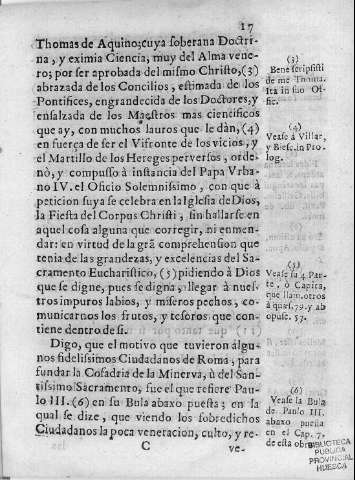 17
Thomas de Aquino; cuya soberana Doctri-
na, y eximia Ciencia, muy del Alma vene-
ro; por ser aprobada del mismo Christo, (3)
abrazada de los Concilios, estimada de los
Pontifices, engrandecida de los Doctores, y
ensalzada de los Maestros mas cientificos
que ay, con muchos lauros que le dàn, (4)
en fuerça de ser el Vifronte de los vicios, y
el Martillo de los Hereges perversos, orde-
nò, y compusso à instancia del Papa Vrba-
no IV. el Oficio Solemnissimo, con que à
peticion suya se celebra en la Iglesia de Dios,
la Fiesta del Corpus Christi, sin hallarse en
aquel cosa alguna que corregir, ni enmen-
dar: en virtud de la grã comprehension que
tenia de las grandezas, y excelencias del Sa-
cramento Eucharistico, (5) pidiendo à Dios
que se digne, pues se digna, llegar à nues-
tros impuros labios, y miseros pechos, com-
unicarnos los frutos, y tesoros que con-
tiene dentro de si.
Digo, que el motivo que tuvieron algu-
nos fidelissimos Ciudadanos de Roma, para
fundar la Cofadria de la Minerva, ò del San-
tissimo Sacramento, fue el que refiere Pau-
lo III. (6) en su Bula abaxo puesta; en la
qual se dize, que viendo los sobredichos
Ciudadanos la poca veneracion, culto, y re-
C ve-
(3)
Bene scripsisti
de me Thoma.
Ita in suo Of-
fic.
(4)
Vease à Villar,
y Biese, in Pro
log.
(5)
Vease su 4. Par-
te, ò Capita,
que llam. otros
à quæs. 79. y ab
opusc. 57.
(6)
Vease la Bula
de Paulo III.
abaxo puesta
en el Cap. 7.
de esta obra.
BIBLIOTECA
PUBLICA
PROVINCIAL
HUESCA